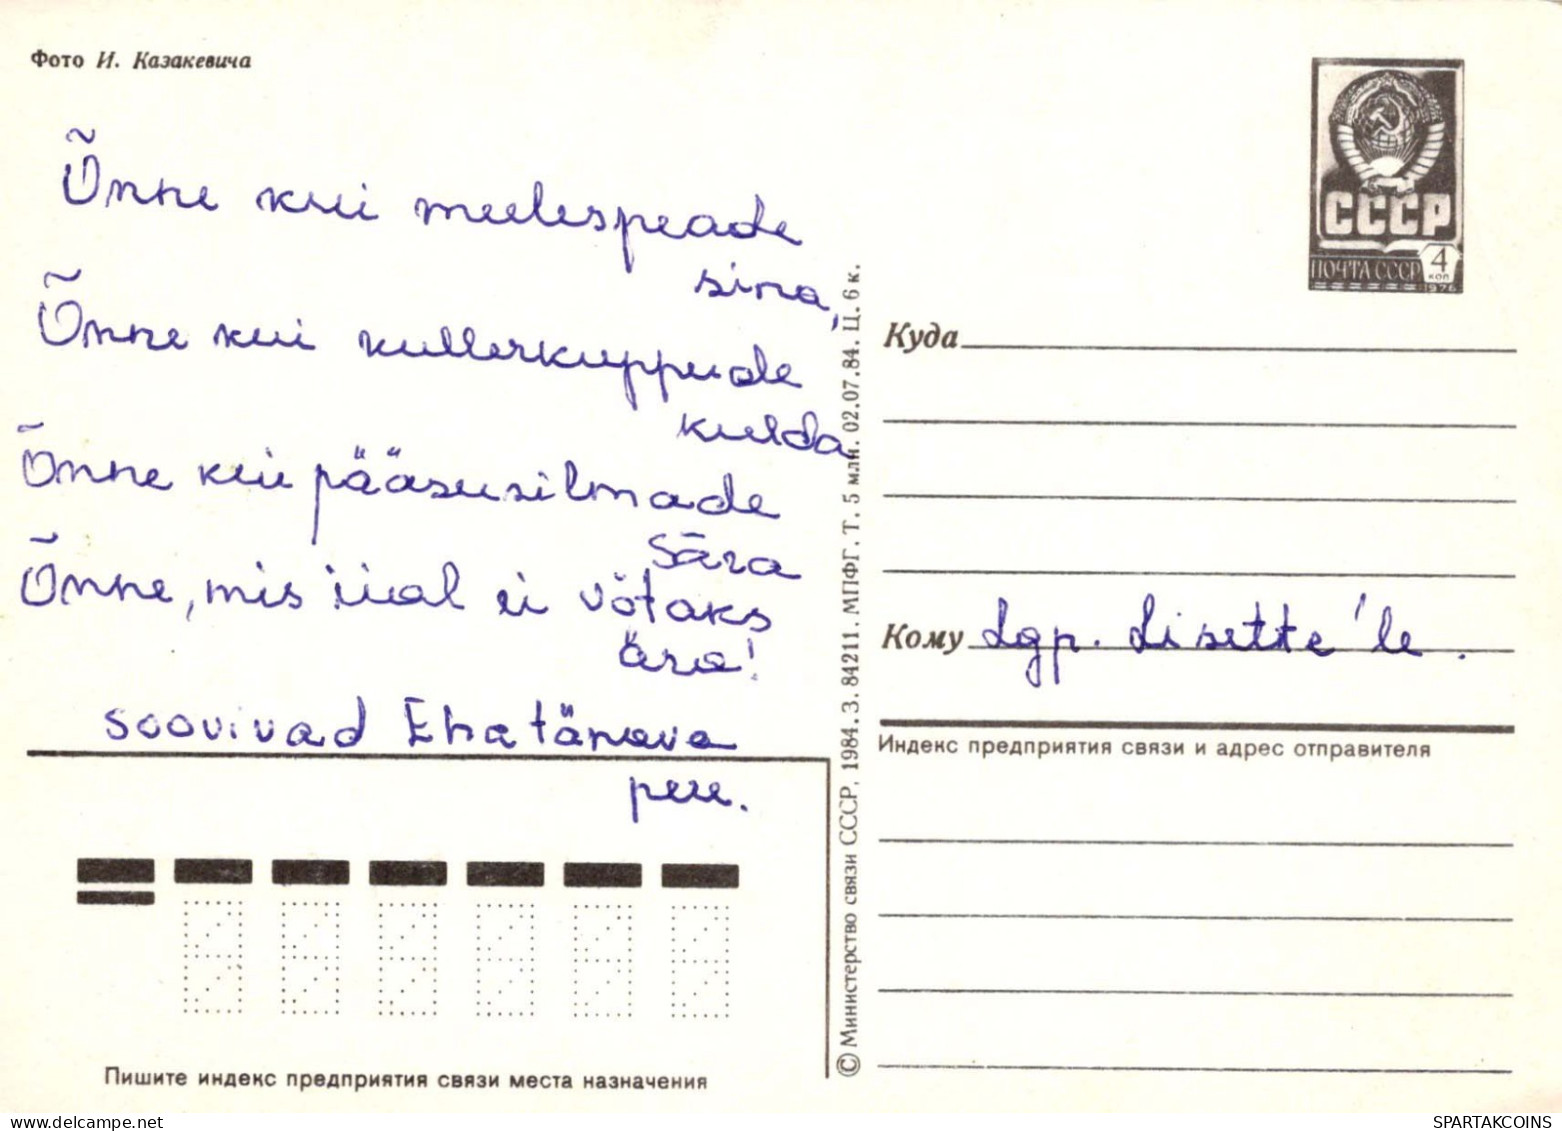 Фото И. Казакевича
Õnne kui meelespeade
sina,
Õnne kui kullerkuppude
kulda
Õnne kui pääsusilmade
sära
Õnne, mis iial ei võtaks
ära!
soovivad Ehatänava
pere.
Пишите индекс предприятия связи места назначения
© Министерство связи СССР, 1984. З. 84211. МПФГ. Т. 5 млн. 02.07.84. Ц. 6 к.
СССР
ПОЧТА СССР
4
КОП
1976
Куда
Кому Lgp. Lisette'le.
Индекс предприятия связи и адрес отправителя
SPARTAKCOINS